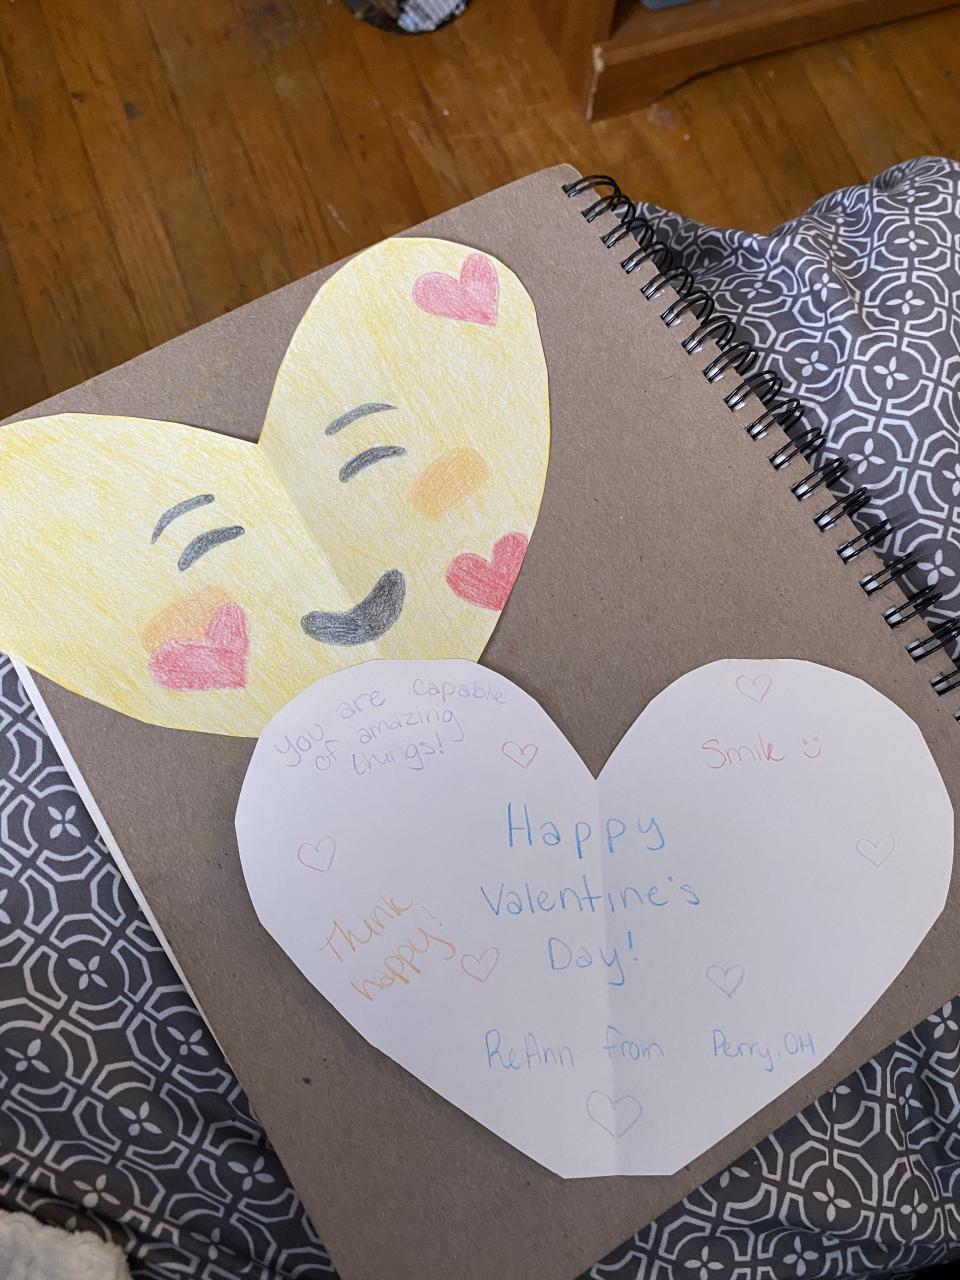 you are capable
of amazing
things!
Smile :)
Happy
Valentine's
Day!
Think
happy!
ReAnn from Perry, OH